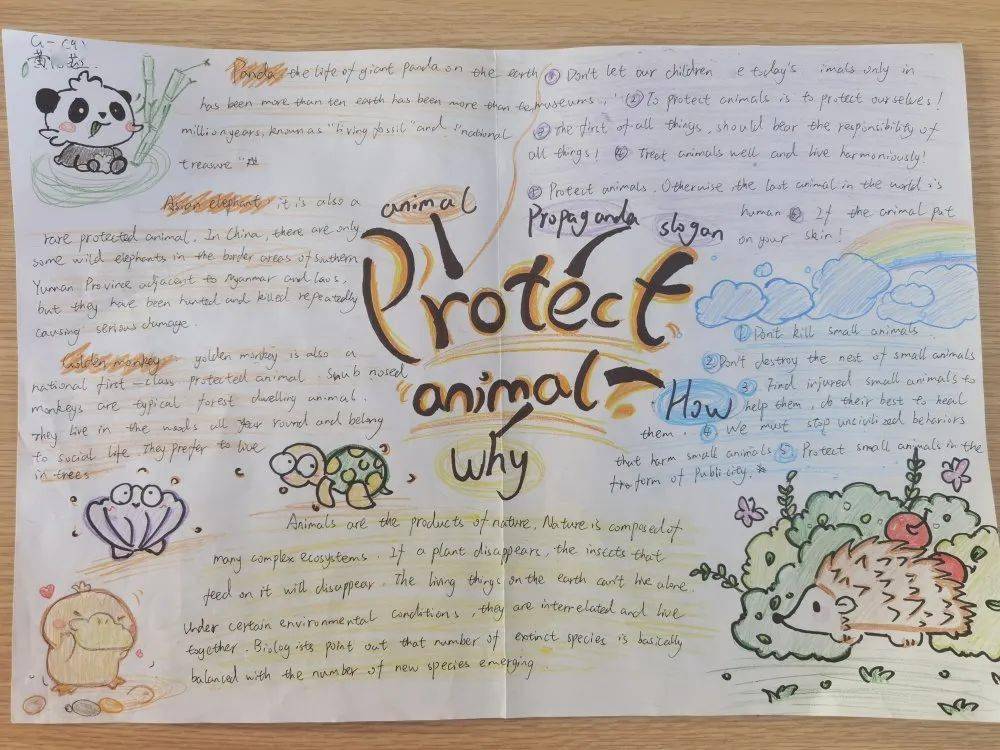 Panda the life of giant panda on the earth
has been more than ten earth has been more than te
million years, known as "living fossil" and "national
treasure"
Asian elephant it is also a
rare protected animal. In China, there are only
some wild elephants in the border areas of southern
Yunnan Province adjacent to Myanmar and laos,
but they have been hunted and killed repeatedly
causing serious damage.
Golden monkey golden monkey is also a
national first-class protected animal. Snub nosed
monkeys are typical forest dwelling animal.
They live in the woods all year round and belong
to social life. They prefer to live
in trees
① Don't let our children e today's imals only in
museums, ② To protect animals is to protect ourselves!
③ The first of all things, should bear the responsibility of
all things! ④ Treat animals well and live harmoniously!
⑤ Protect animals. Otherwise the last animal in the world is
human ⑥ If the animal put
on your skin!
animal
Propaganda slogan
Protect
animal
How
Why
① Don't kill small animals
② Don't destroy the nest of small animals
③ Find injured small animals to
help them, do their best to heal
them. ④ We must stop uncivilized behaviors
that harm small animals ⑤ Protect small animals in the
form of Publicity.
Animals are the products of nature. Nature is composed of
many complex ecosystems. If a plant disappears, the insects that
feed on it will disappear. The living things on the earth can't live alone.
Under certain environmental conditions, they are interrelated and live
together. Biologists point out that number of extinct species is basically
balanced with the number of new species emerging.